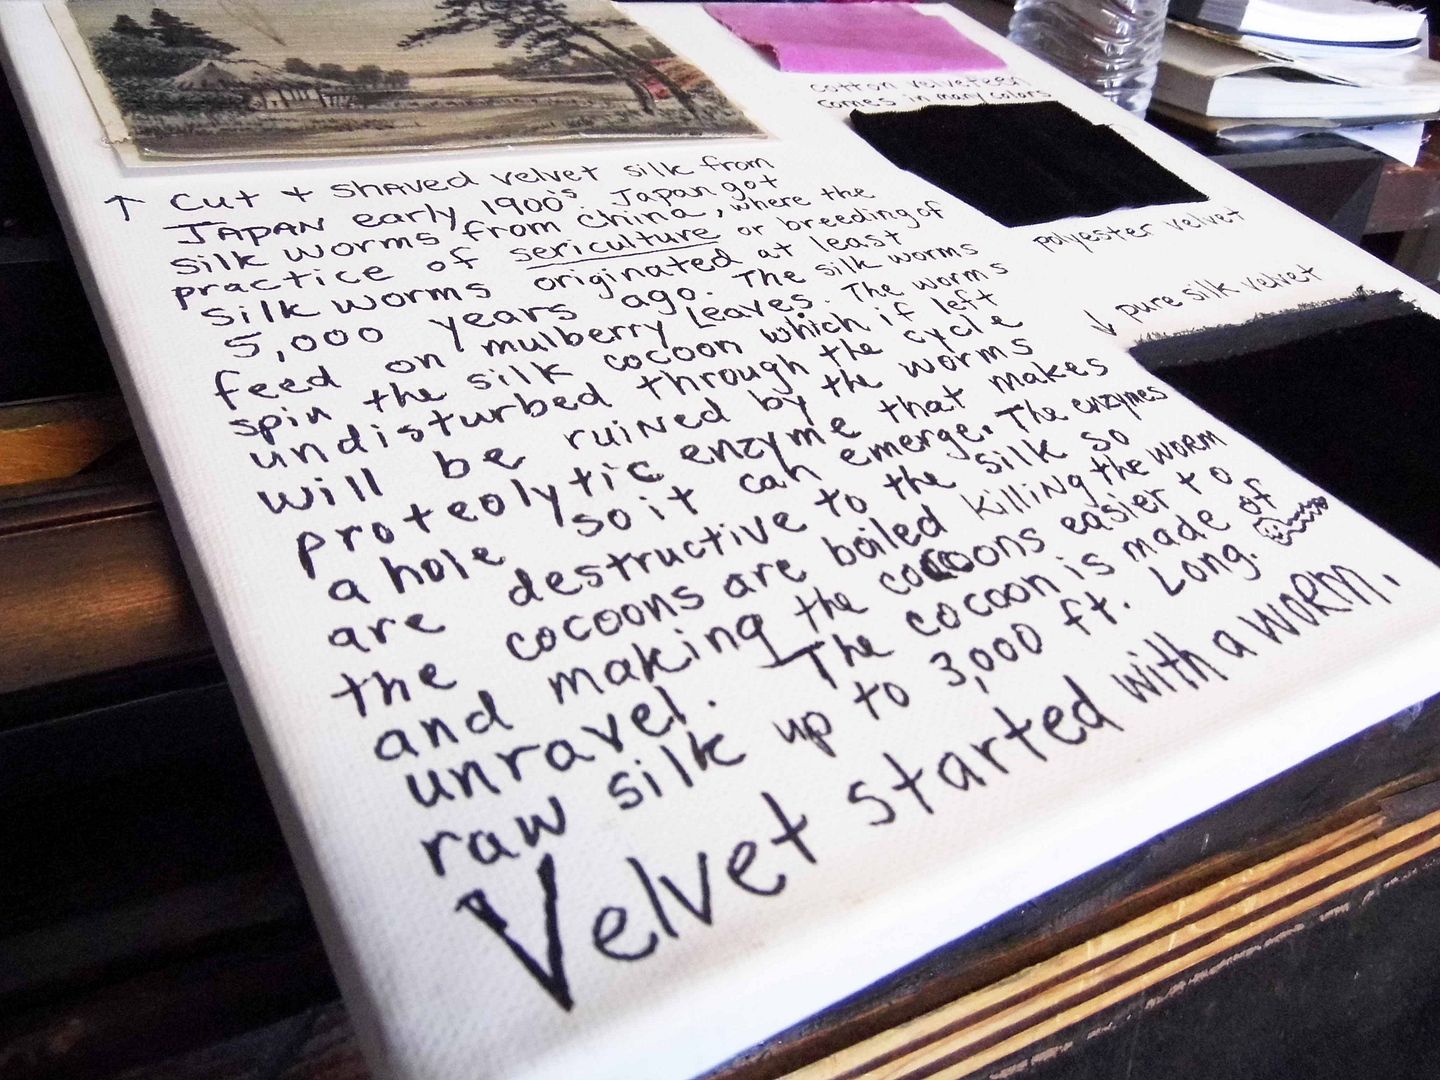 cotton velveteen
comes in many colors
polyester velvet
↓ pure silk velvet
↑ Cut + SHAVED velvet silk from
JAPAN early 1900's. Japan got
silk worms from China, where the
practice of sericulture or breeding of
silk worms originated at least
5,000 years ago. The silk worms
feed on mulberry Leaves. The worms
spin the silk cocoon which if left
undisturbed through the cycle
will be ruined by the worms
proteolytic enzyme that makes
a hole so it can emerge. The enzymes
are destructive to the silk so
the cocoons are boiled killing the worm
and making the cocoons easier to
unravel. The cocoon is made of
raw silk up to 3,000 ft. Long.
Velvet started with a worm.